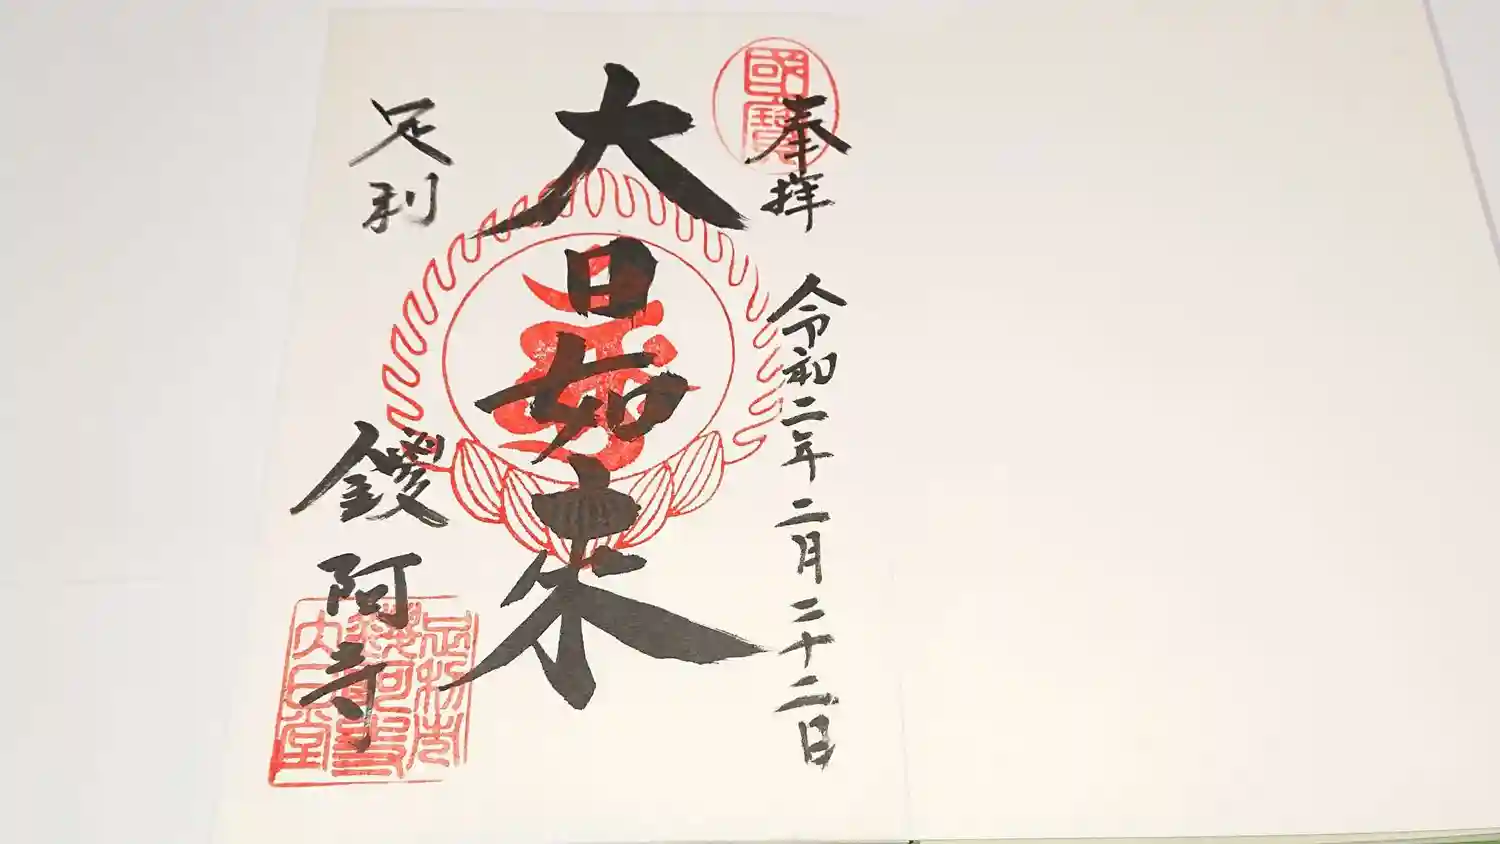 國寶
奉拝 令和二年二月二十二日
大日如来
足利 鑁阿寺
足利市
鑁阿寺
大日堂